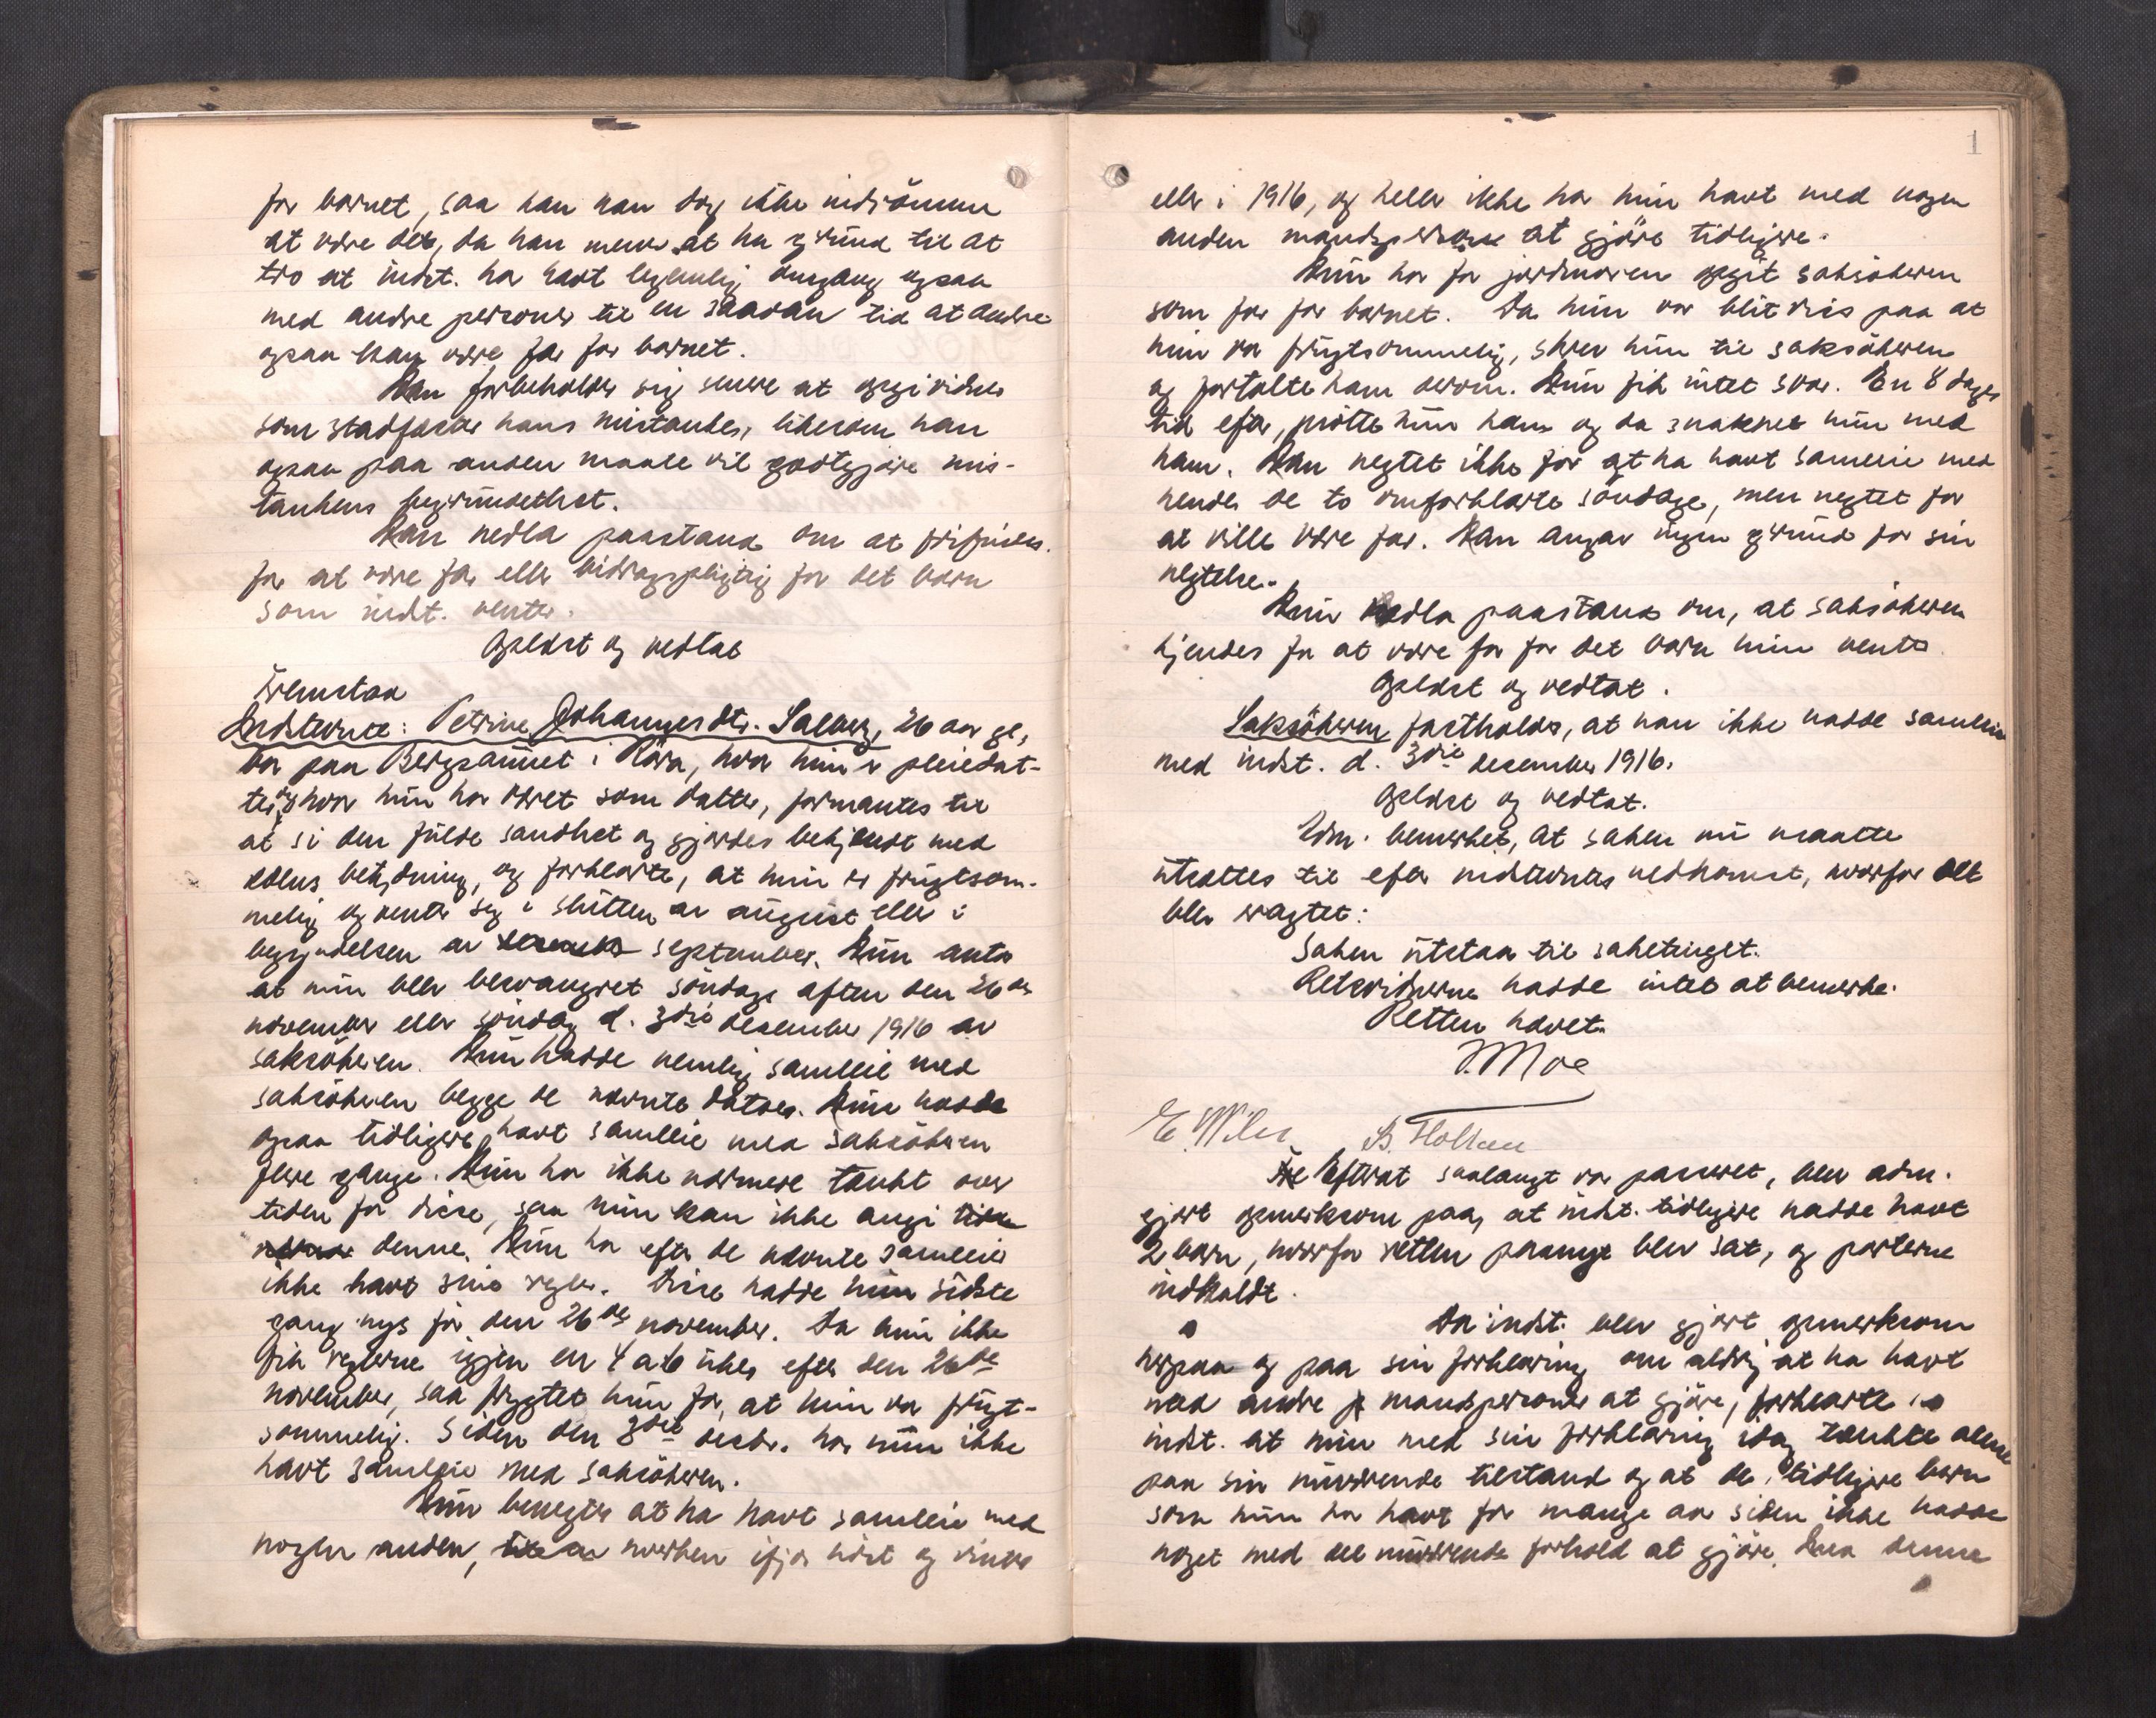 for barnet, saa kan han dog ikke indrömme
at være det, da han mener at ha grund til at
tro at indst. ha havt legemlig omgang ogsaa
med andre personer til en saadan tid at andre
ogsaa kan være far for barnet.
Han forbeholder sig senere at opgi vidner
som stadfæster hans mistanke, likesom han
ogsaa paa anden maate vil godtgjøre mis-
tankens begrundethet.
Han nedla paastand om at frifindes
for at være far eller bidragspligtig for det barn
som indst. venter.
Oplæst og vedtat
Fremstod
Indstevnte: Petrine Johannesdtr. Salberg, 26 aar gl,
bor paa Bergsaunet i Röra, hvor hun er pleiedat-
ter og hvor hun har været som datter, formantes til
at si den fulde sandhet og gjordes bekjendt med
edens betydning, og forklarte, at hun er frugtsom-
melig og venter sig i slutten av august eller i
begyndelsen av september. Hun antar
at hun blev besvangret söndags aften den 26de
november eller söndag d. 3die desember 1916 av
saksökeren. Hun hadde nemlig samleie med
saksökeren begge de nævnte datoer. Hun hadde
ogsaa tidligere havt samleie med saksökeren
flere gange. Hun har ikke nærmere tænkt over
tiden for disse, saa hun kan ikke angi
denne. Hun har efter de nævnte samleier
ikke havt sine regler. Disse hadde hun sidste
gang nys för den 26de november. Da hun ikke
fik reglerne igjen en 4 a 6 uker efter den 26de
november, saa frygtet hun for, at hun var frugt-
sommelig. Siden den 3die desbr. har hun ikke
havt samleie med saksökeren.
Hun benegter at ha havt samleie med
nogen anden, hverken ifjor höst og vinter
1
eller i 1916, og heller ikke har hun havt med nogen
anden mandsperson at gjöre tidligere.
Hun har for jordmoren opgit saksökeren
som far for barnet. Da hun var blit viss paa at
hun var frugtsommelig, skrev hun til saksökeren
og fortalte ham derom. Hun fik intet svar. En 8 dages
tid efter, mötte hun ham og da snakket hun med
ham. Han negtet ikke for at ha havt samleie med
hende de to omforklarte söndage, men negtet for
at ville være far. Han angav ingen grund for sin
negtelse.
Hun nedla paastand om, at saksökeren
kjendes for at være far for det barn hun venter.
Oplæst og vedtat.
Saksökeren fastholder, at han ikke hadde samleie
med indst. d. 3die desember 1916.
Oplæst og vedtat.
Adm. bemerket, at saken nu maatte
utsættes til efter indstevntes nedkomst, hvorfor det
blev vragtet:
Saken utstaar til saketinget.
Retsvidnerne hadde intet at bemerke.
Retten hævet.
J. Moe
E. Wiler B. Flottum
Efterat saalangt var passeret, blev adm.
gjort opmerksom paa, at indst. tidligere hadde havt
2 barn, hvorfor retten paanyt blev sat, og parterne
indkaldt.
Da indst. blev gjort opmerksom
herpaa og paa sin forklaring om aldrig at ha havt
med andre mandspersoner at gjöre, forklarte
indst. at hun med sin forklaring idag tænkte alene
paa sin nuværende tilstand og at de tidligere barn
som hun har havt for mange aar siden ikke hadde
noget med det nuværende forhold at gjöre. Paa denne